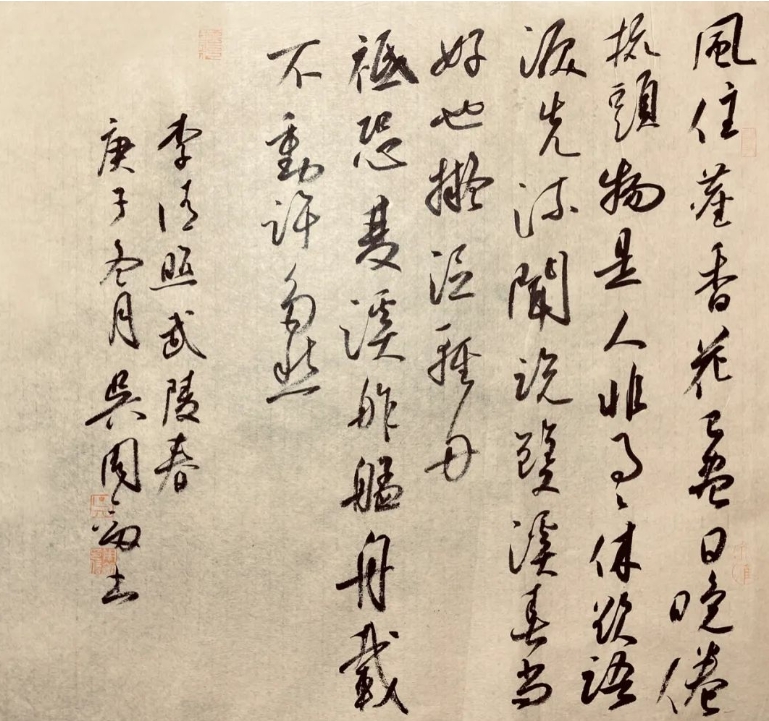 風住塵香花已盡日晚倦
梳頭物是人非事〻休欲語
淚先流聞說雙溪春尚
好也擬泛輕舟
祗恐雙溪舴艋舟載
不動許多愁
李清照武陵春
庚子冬月吳國富書